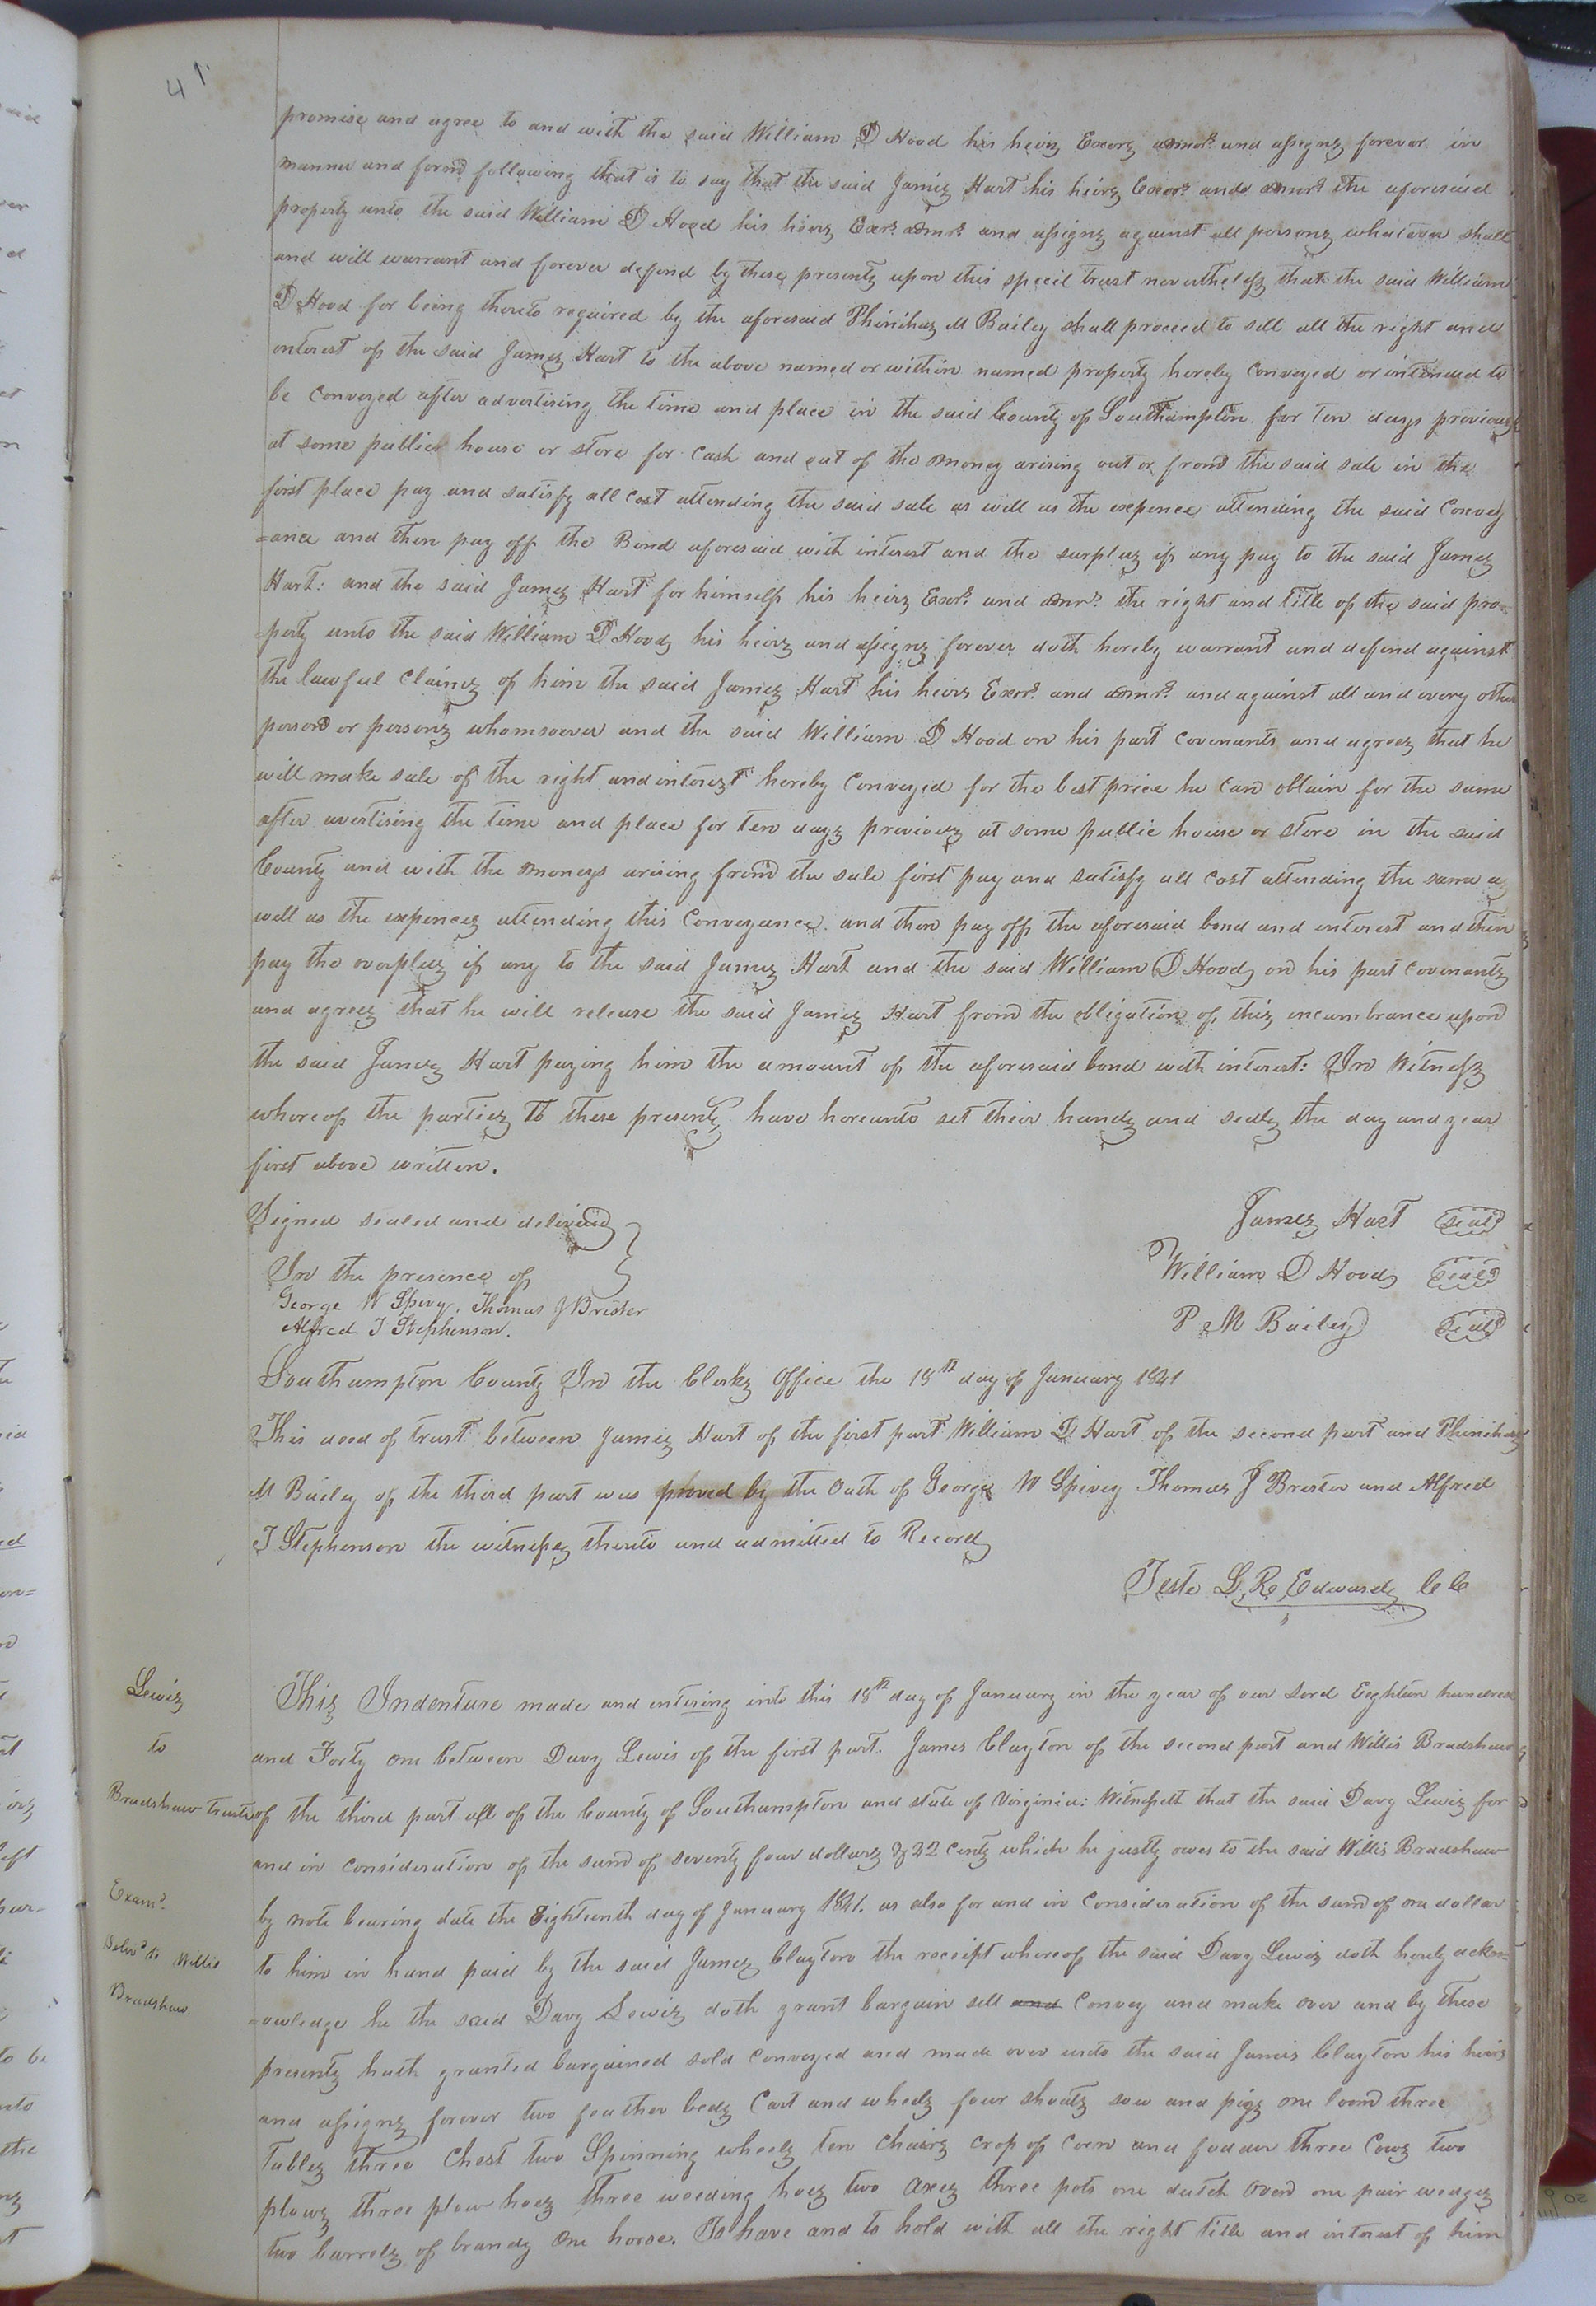 41.
promise and agree to and with the said William D Hood his heirs Exors admrs and assigns forever in
manner and form following that is to say that the said James Hart his heirs Exors and admrs the aforesaid
property unto the said William D Hood his heirs Exrs admrs and assigns against all persons whatever shall
and will warrant and forever defend by these presents upon this specil trust nevertheless that the said William
D Hood for being thereto required by the aforesaid Phinihas M Bailey shall proceed to sell all the right and
interest of the said James Hart to the above named or within named property hereby conveyed or intended to
be conveyed after advertising the time and place in the said County of Southampton for ten days previous
at some public house or store for cash and out of the money arising out or from the said sale in the
first place pay and satisfy all cost attending the said sale as well as the expence attending the said Convey
=ance and then pay off the Bond aforesaid with interest and the surplus if any pay to the said James
Hart: and the said James Hart for himself his heirs Exors and admrs the right and title of the said pro=
=perty unto the said William D Hood his heirs and assigns forever doth hereby warrant and defend against
the lawful claims of him the said James Hart his heirs Exors and admrs and against all and every other
person or persons whomsoever and the said William D Hood on his part covenants and agrees that he
will make sale of the right and interest hereby conveyed for the best price he can obtain for the same
after avertising the time and place for ten days previous at some public house or store in the said
County and with the moneys arising from the sale first pay and satisfy all cost attending the same as
well as the expences attending this Conveyance and then pay off the aforesaid bond and interest and then
pay the overplus if any to the said James Hart and the said William D Hood on his part covenants
and agrees that he will release the said James Hart from the obligation of this incumbrance upon
the said James Hart paying him the amount of the aforesaid bond with interest: In Witness
whereof the parties to these presents have hereunto set their hands and seals the day and year
first above written.
Signed sealed and delivered
In the presence of
George W Spivy, Thomas J Brister
Alfred J Stephenson.
James Hart seal
William D Hood seal
P M Bailey seal
Southampton County In the Clerks Office the 18th day of January 1841
This deed of trust between James Hart of the first part William D Hart of the second part and Phinihas
M Bailey of the third part was proved by the Oath of George W Spivey Thomas J Brister and Alfred
J Stephenson the witnesses thereto and admitted to Record
Teste L, R, Edwards CC
Lewis
to
Bradshaw Truste
Examd
Delivd to Willis
Bradshaw.
This Indenture made and entering into this 18th day of January in the year of our Lord Eighteen hundred
and Forty one between Davy Lewis of the first part. James Clayton of the second part and Willis Bradshaw
of the third part all of the County of Southampton and state of Virginia: Witnesseth that the said Davy Lewis for
and in consideration of the sum of seventy four dollars & 22 cents which he justly owes to the said Willis Bradshaw
by note bearing date the Eighteenth day of January 1841. as also for and in consideration of the sum of one dollar
to him in hand paid by the said James Clayton the receipt whereof the said Davy Lewis doth herely ackn=
=owledge he the said Davy Lewis doth grant bargain sell and convey and make over and by these
presents hath granted bargained sold conveyed and made over unto the said James Clayton his heirs
and assigns forever two feather beds Cart and wheels four shoats sow and pigs one loom three
Tables three Chest two Spinning wheels ten chairs crop of corn and fodder three cows two
plows three plow hoes three weeding hoes two axes three pots one dutch oven one pair wedges
two barrels of brandy one horse. To have and to hold with all the right title and interest of him